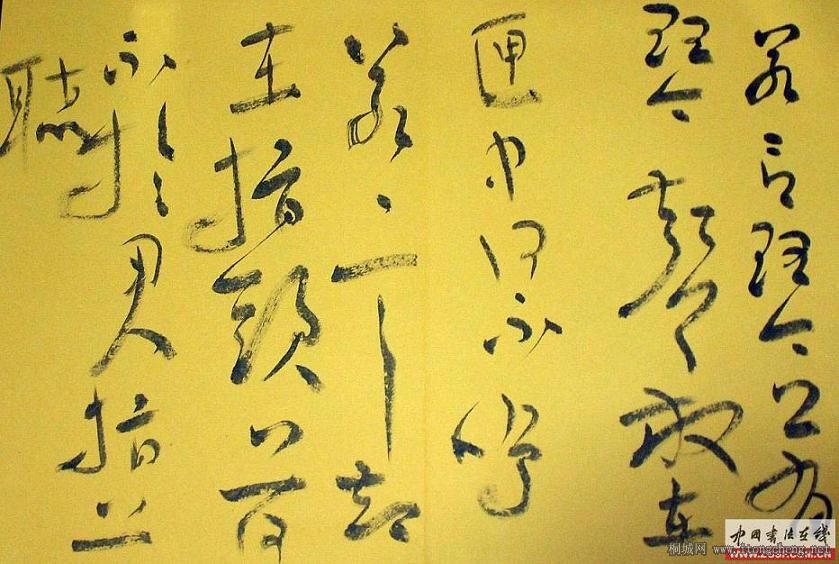 若言琴上有
琴聲放在
匣中何不鳴
若言声
在指頭上何
不于君指上
聽
中国书法在线
桐城网 www.ttongcheng.net